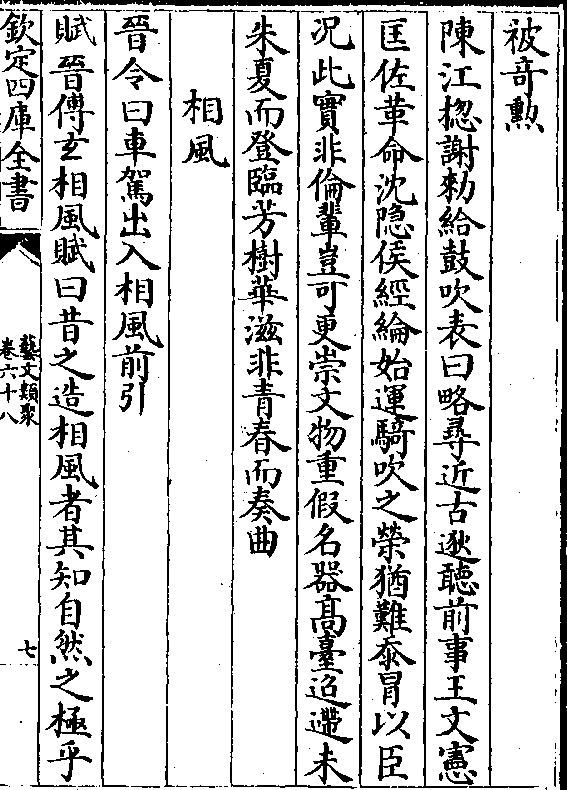 被竒勲
陳江揔謝勑給鼓吹表曰略尋近古逖聴前事王文憲
匡佐革命沈隠侯經綸始運騎吹之榮猶難忝冐以臣
况此實非倫輩豈可更崇文物重假名器髙臺迢遰未
朱夏而登臨芳樹華滋非青春而奏曲
相風
晉令曰車駕出入相風前引
賦晉傅玄相風賦曰昔之造相風者其知自然之極乎
欽定四庫全書
藝文類聚
卷六十八
七